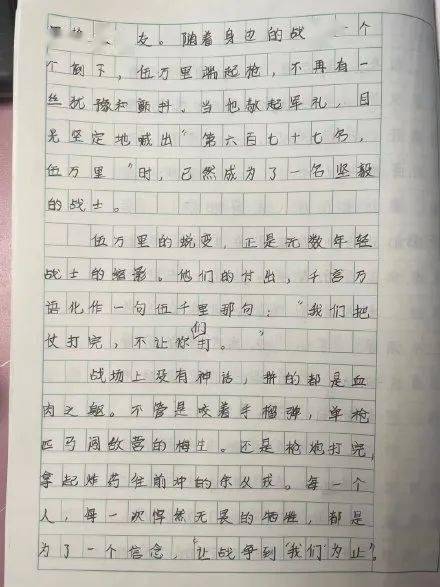 友。随着身边的战 个
个倒下，伍万里端起枪，不再有一
丝犹豫和颤抖。当他敬起军礼，目
光坚定地喊出“第六百七十七名，
伍万里”时，已然成为了一名坚毅
的战士。
伍万里的蜕变，正是无数年轻
战士的缩影。他们的付出，千言万
语化作一句伍千里那句：“我们把
仗打完，不让你们打。”
战场上没有神话，拼的都是血
肉之躯。不管是咬着手榴弹，单枪
匹马闯敌营的梅生。还是枪炮打完，
拿起炸药往前冲的余从戎。每一个
人，每一次悍然无畏的牺牲，都是
为了一个信念，“让战争到‘我们’为止”。